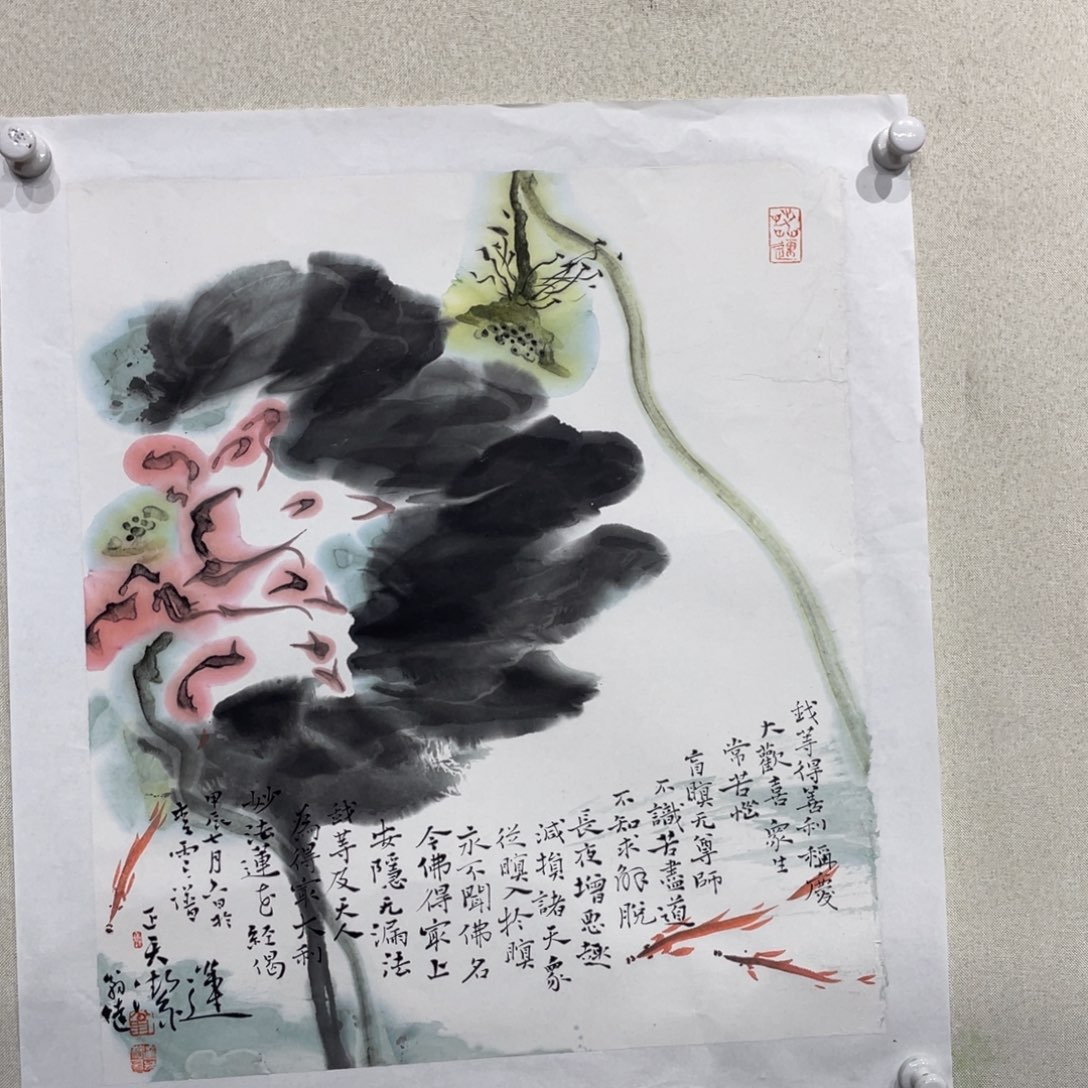 我等得善利稱慶
大歡喜眾生
常苦惱
盲瞑无尊師
不識苦盡道
不知求解脫
長夜增惡趣
減損諸天眾
從瞑入於瞑
永不聞佛名
今佛得最上
安隱无漏法
我等及天人
為得最大利
妙法蓮花經偈
甲辰七月六日於
雲譜